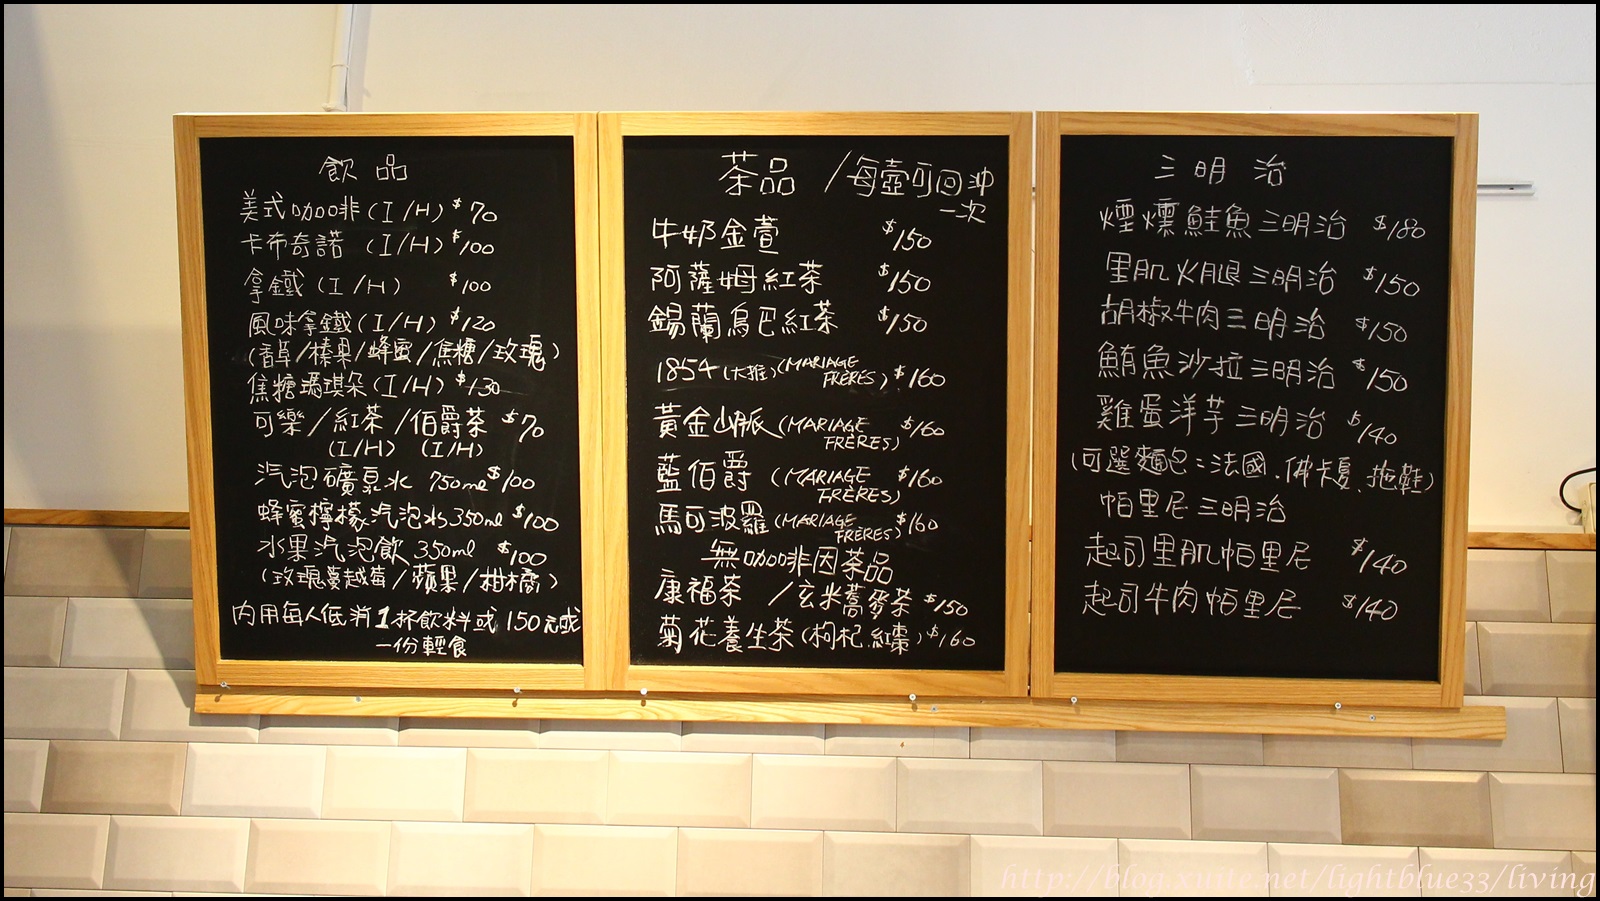 飲品
美式咖啡(I/H) $70
卡布奇諾 (I/H) $100
拿鐵 (I/H) $100
風味拿鐵(I/H) $120
(香草/榛果/蜂蜜/焦糖/玫瑰)
焦糖瑪琪朵(I/H) $130
可樂/紅茶/伯爵茶 $70
(I/H) (I/H)
汽泡礦泉水 750ml $100
蜂蜜檸檬汽泡水350ml $100
水果汽泡飲 350ml $100
(玫瑰蔓越莓/蘋果/柑橘)
內用每人低消1杯飲料或150元或
一份輕食
茶品 /每壺可回沖
一次
牛奶金萱 $150
阿薩姆紅茶 $150
錫蘭烏巴紅茶 $150
1854(大推)(MARIAGE FRÈRES) $160
黃金山脈(MARIAGE FRÈRES) $160
藍伯爵 (MARIAGE FRÈRES) $160
馬可波羅(MARIAGE FRÈRES) $160
無咖啡因茶品
康福茶 /玄米蕎麥茶 $150
菊花養生茶(枸杞.紅棗) $160
三明治
煙燻鮭魚三明治 $180
里肌火腿三明治 $150
胡椒牛肉三明治 $150
鮪魚沙拉三明治 $150
雞蛋洋芋三明治 $140
(可選麵包:法國、佛卡夏、拖鞋)
帕里尼三明治
起司里肌帕里尼 $140
起司牛肉帕里尼 $140
http://blog.xuite.net/lightblue33/living